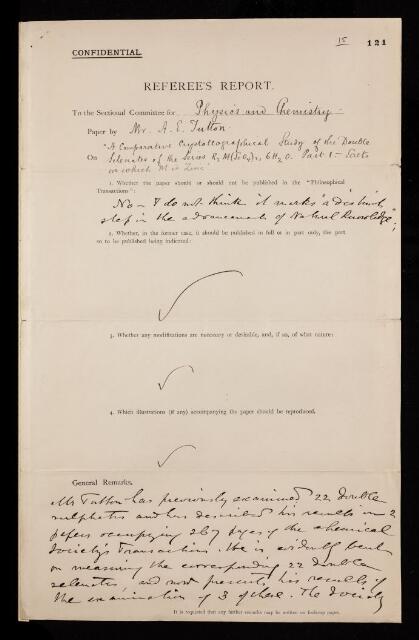 15 121
CONFIDENTIAL.
REFEREE'S REPORT.
To the Sectional Committee for Physics and Chemistry
Paper by Mr. A. E. Tutton
"A Comparative Crystallographical Study of the Double
On Selenates of the Series R₂M(SeO₄)₂, 6H₂O. Part 1 — Salts
in which M is Zinc"
1. Whether the paper should or should not be published in the "Philosophical
Transactions":
No – I do not think it marks "a distinct
step in the advancement of Natural Knowledge";
2. Whether, in the former case, it should be published in full or in part only, the part
so to be published being indicated:
3. Whether any modifications are necessary or desirable, and, if so, of what nature:
4. Which illustrations (if any) accompanying the paper should be reproduced.
General Remarks.
Mr Tutton has previously examined 22 double
sulphates and has described his results in 2
papers occupying 267 pages of the Chemical
Society's Transactions. He is evidently bent
on measuring the corresponding 22 double
selenates, and now presents his results of
the examination of 3 of these. The Society
It is requested that any further remarks may be written on foolscap paper.